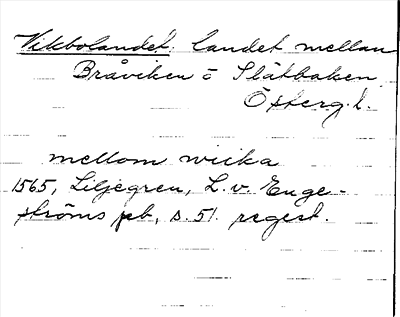 Vikbolandet. landet mellan
Bråviken o Slätbaken
Österg. l.
mellom wiika
1565, Liljegren, L. v. Enge-
ströms pb, s. 51. regest.